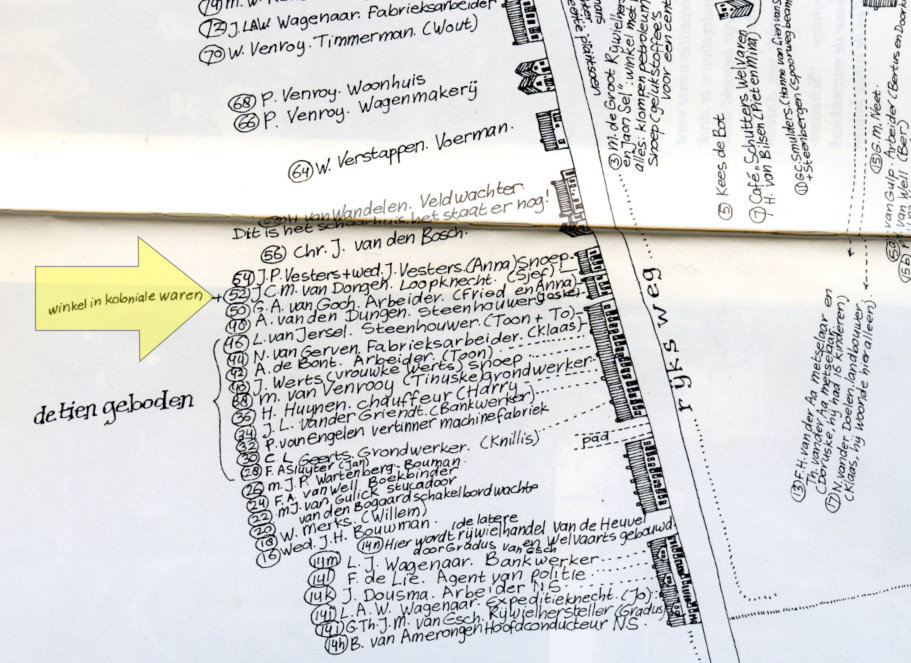 72 J. LAW. Wagenaar. Fabrieksarbeider
70 W. Venroy. Timmerman. (Wout)
68 P. Venroy. Woonhuis
66 P. Venroy. Wagenmakerij
64 W. Verstappen. Voerman.
H. van Wandelen. Veldwachter
Dit is het schaarhuis het staat er nog!
56 Chr. J. van den Bosch.
54 J.P. Vesters + wed. J. Vesters. (Anna) Snoep
winkel in koloniale waren + 52 J.C.M. van Dongen. Loopknecht. (Sjef)
50 G. A. van Goch. Arbeider. (Fried en Anna)
A. van den Dungen. Steenhouwer
46 L. van Jersel. Steenhouwer. (Toon + To)
44 N. van Gerven. Fabrieksarbeider. (Klaas)
A. de Bont. Arbeider. (Toon)
J. Werts (vrouwke Werts) snoep
38 M. van Venrooy (Tinuske) Grondwerker
36 H. Huynen. chauffeur (Harry)
34 J. L. vander Griendt. (Bankwerker)
32 P. van Engelen vertinner machinefabriek
30 C. L. Geerts. Grondwerker. (Knillis)
28 F. A Sluyter (Jan)
de tien geboden
26 M. J. P. Wartenberg. Bouman.
24 F. A. van Well Boekbinder
22 M.J. van Gulick stucadoor
20 van den Bogaard schakelbordwachte
18 W. Merks. (Willem)
16 Wed. J. H. Bouwman.
14n Hier wordt (de latere rijwielhandel van de Heuvel
door Gradus van Esch en Welvaarts gebouwd
14m L. J. Wagenaar. Bankwerker
14l F. de Lie. Agent van politie
14k J. Dousma. Arbeider NS.
14j L. A. W. Wagenaar. Expeditieknecht. (Jo)
14i G. Th. J. M. van Esch. Rijwielhersteller (Gradus)
14h B. van Amerongen Hoofdconducteur NS.
pad
rijksweg
3 M. de Groot Rijwielhers
en Jaon Sel": winkel met
alles: klompen petroleum
Snoep (gelukstoffees
voor een cent
5 Kees de Bot
7 Café „Schutters Welvaren
H. van Bilsen (Piet en Mina)
11 G.C. Smulders (Hanne van Lien van S
+ Steenbergen (Spoorweg beam
15 G. M. Neet.
van Gulp. Arbeider (Bertus en Door
van Well (Ber)
13 F. H. van der Aa metselaar
Th. van der Aa metselaar
(Doruske, hij had 16 kinderen)
17 N. vander Doelen. landbouwer
(Klaas, hij woonde hier alleen).